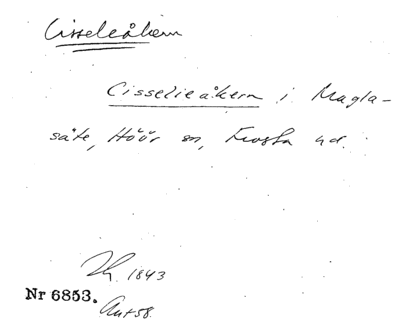 Cisseleåkern
Cisselieåkern i Magla-
säte, Höör sn, Frosta hd.
Th. 1843
Nr 6853.
Ant 58.